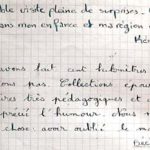 ble visite pleine de surprises.
dans mon enfance et ma région
avons fait cent kilomètres
ons pas. Collections épous
très pédagogiques et
l'humour. Nous
chose: avoir oublié le ma